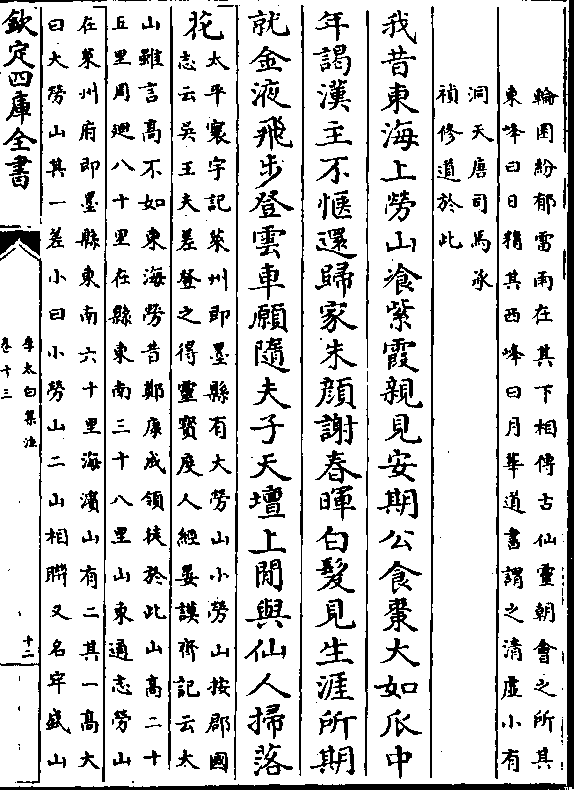 輪囷紛郁雷雨在其下相傳古仙靈朝會之所其
東峰曰日精其西峰曰月華道書謂之清虛小有
洞天唐司馬承
禎修道於此
我昔東海上勞山飡紫霞親見安期公食棗大如瓜中
年謁漢主不愜還歸家朱顔謝春暉白髮見生涯所期
就金液飛步登雲車願隨夫子天壇上閒與仙人掃落
花
太平寰宇記萊州即墨縣有大勞山小勞山按郡國
志云吳王夫差登之得靈寳度人經晏謨齊記云太
山雖言髙不如東海勞昔鄭康成領徒於此山髙二十
五里周廻八十里在縣東南三十八里山東通志勞山
在萊州府即墨縣東南六十里海濱山有二其一髙大
曰大勞山其一差小曰小勞山二山相聨又名牢盛山
欽定四庫全書
李太白集注
卷十三
十二